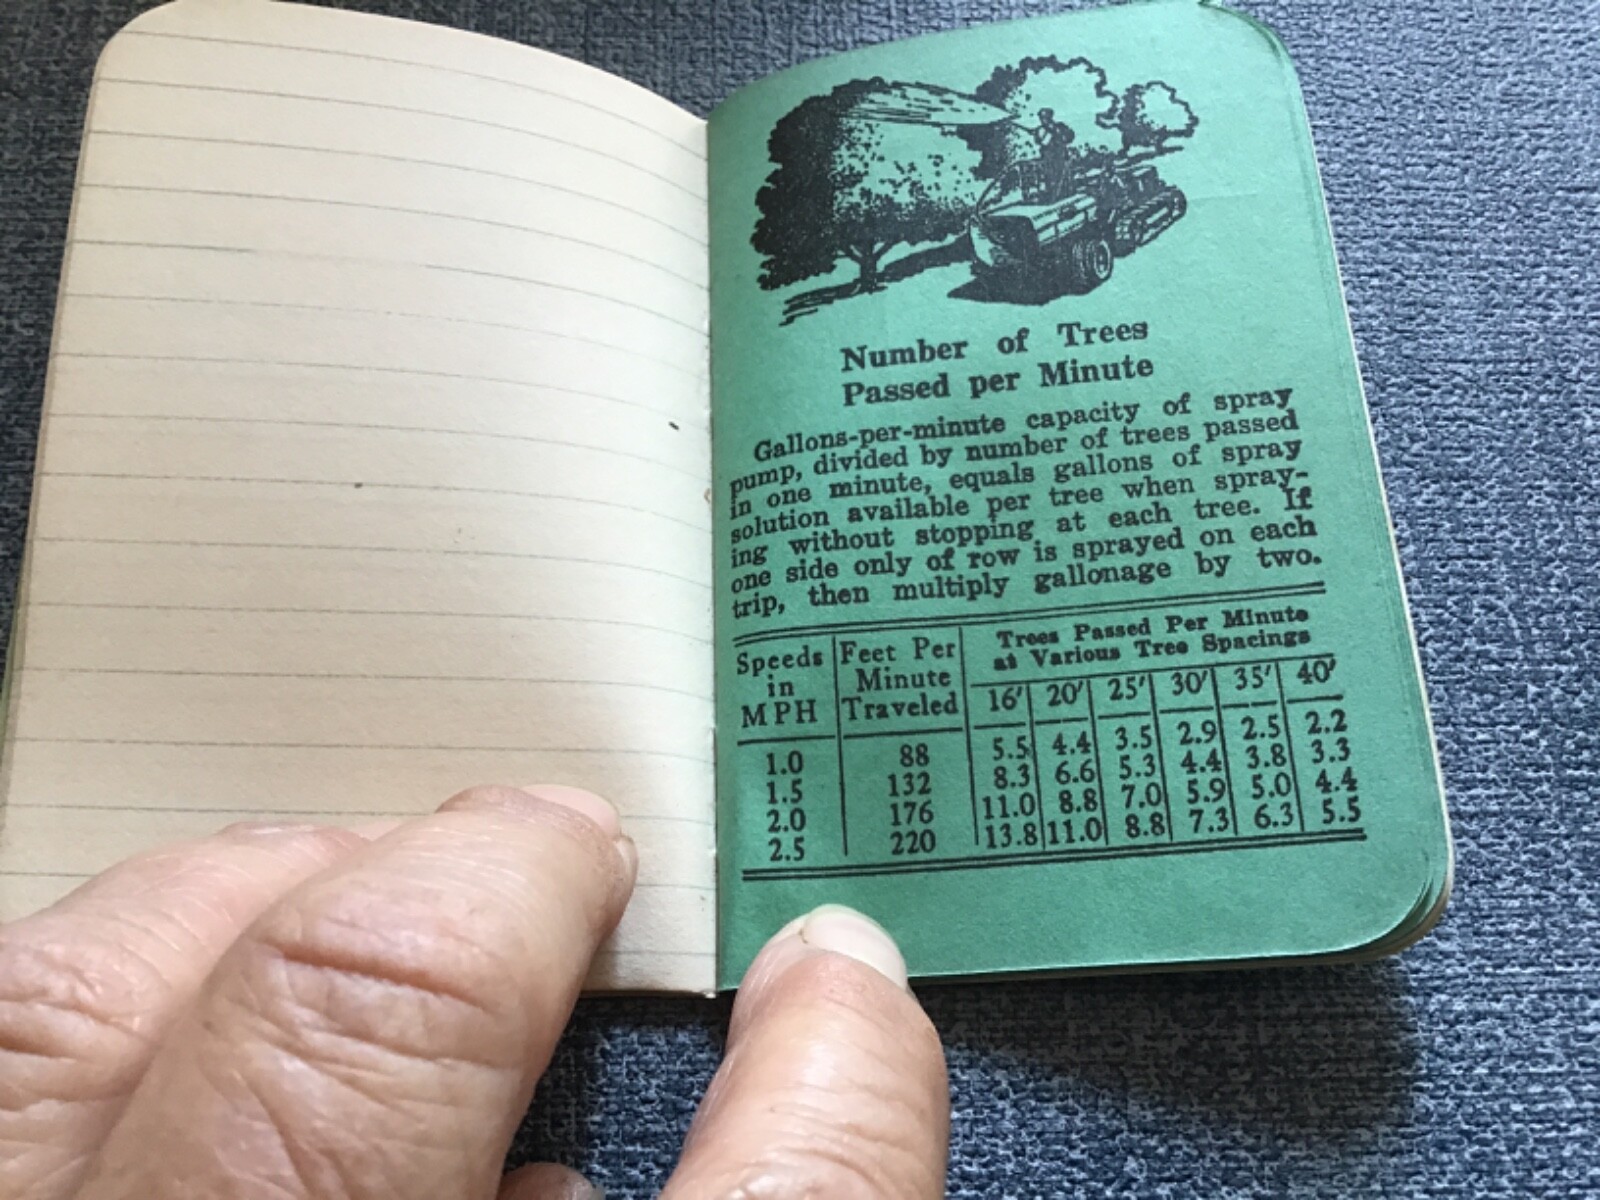 Number of Trees
Passed per Minute
Gallons-per-minute capacity of spray
pump, divided by number of trees passed
in one minute, equals gallons of spray
solution available per tree when spray-
ing without stopping at each tree. If
one side only of row is sprayed on each
trip, then multiply gallonage by two.
Speeds in MPH Feet Per Minute Traveled Trees Passed Per Minute
at Various Tree Spacings
16' 20' 25' 30' 35' 40'
1.0 88 5.5 4.4 3.5 2.9 2.5 2.2
1.5 132 8.3 6.6 5.3 4.4 3.8 3.3
2.0 176 11.0 8.8 7.0 5.9 5.0 4.4
2.5 220 13.8 11.0 8.8 7.3 6.3 5.5